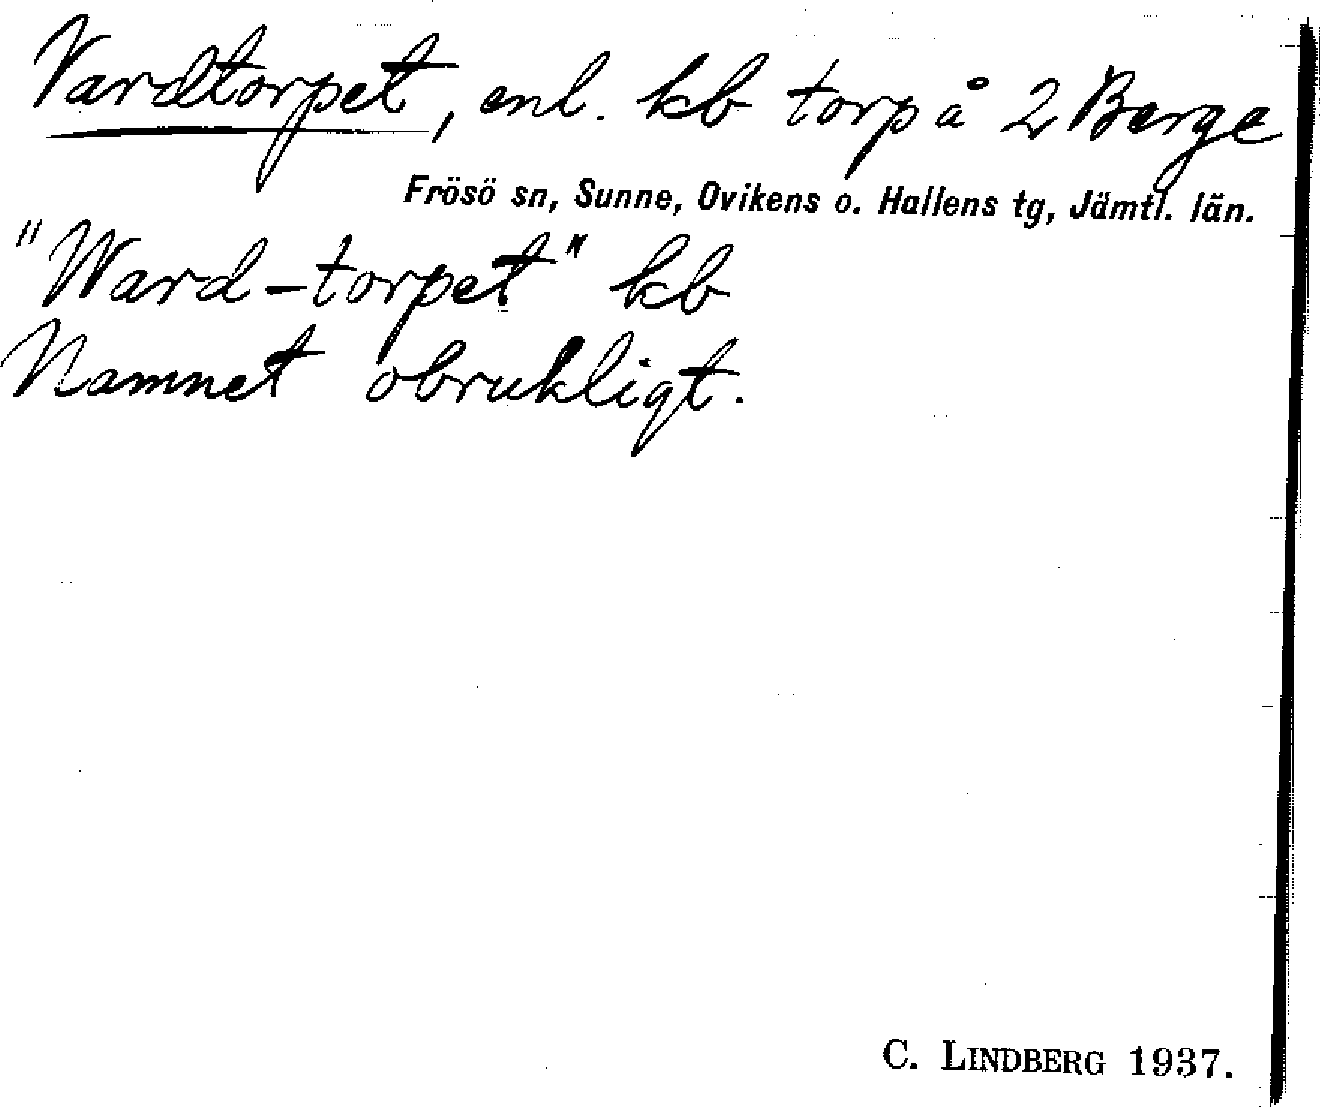 Vardtorpet, enl. kb torp å 2 Berge
Frösö sn, Sunne, Ovikens o. Hallens tg, Jämtl. län.
"Ward-torpet" kb
Namnet obrukligt.
C. LINDBERG 1937.